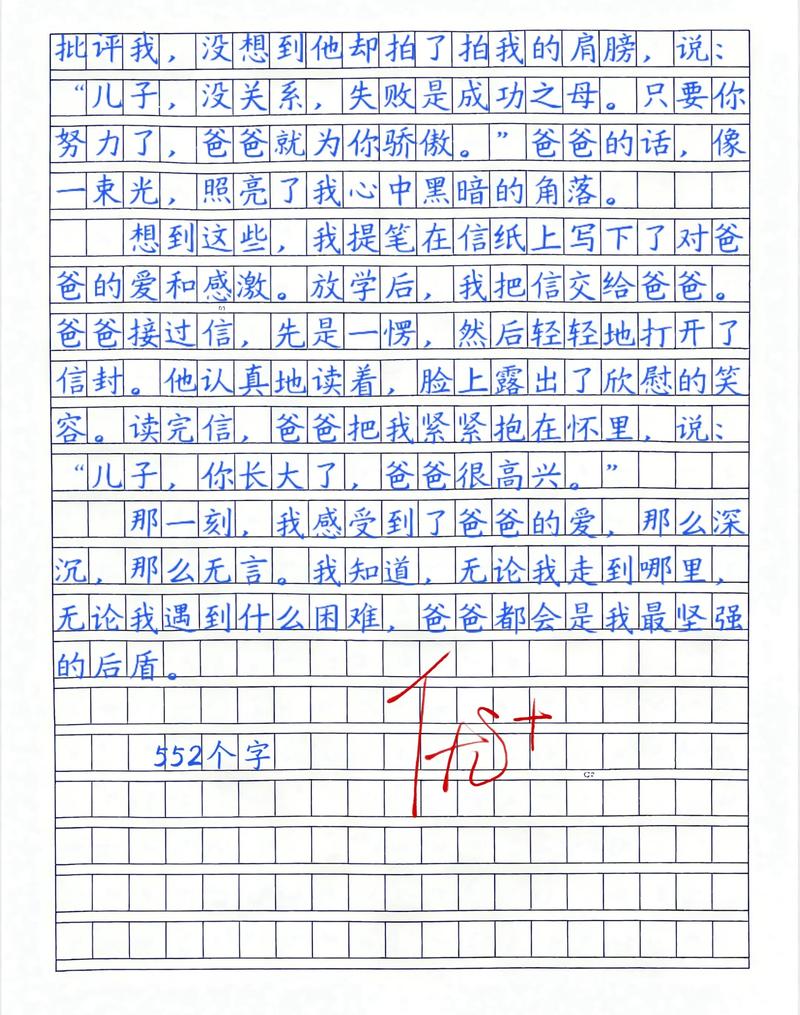 批评我，没想到他却拍了拍我的肩膀，说：
“儿子，没关系，失败是成功之母。只要你
努力了，爸爸就为你骄傲。”爸爸的话，像
一束光，照亮了我心中黑暗的角落。
想到这些，我提笔在信纸上写下了对爸
爸的爱和感激。放学后，我把信交给爸爸。
爸爸接过信，先是一愣，然后轻轻地打开了
信封。他认真地读着，脸上露出了欣慰的笑
容。读完信，爸爸把我紧紧抱在怀里，说：
“儿子，你长大了，爸爸很高兴。”
那一刻，我感受到了爸爸的爱，那么深
沉，那么无言。我知道，无论我走到哪里，
无论我遇到什么困难，爸爸都会是我最坚强
的后盾。
优+
552个字